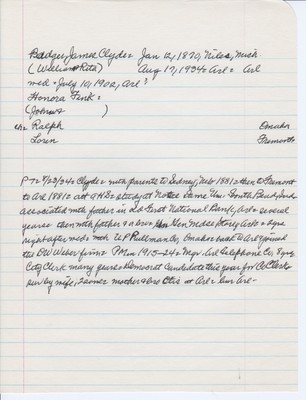 Badger, James Clyde = Jan 12, 1870, Niles, Mich.
(William & Rita) Aug 17, 1934 = Arl = Arl
wed = July 10, 1902, Arl =
Honora Fenk =
(John & )
ch = Ralph Omaha
Loren Fremont
P T = 8/23/34 = Clyde = with parents to Sidney, Neb 1881 = then to Fremont
to Arl 1881 = att = study at Notre Dame Uni = South Bend, Ind =
associated with father in old First National Bank, Arl = several
years = then with father & Gen Mdse Store, Arl =
right after wed = with U P Pullman Co, Omaha = back to Arl joined
the D W Weber firm = P M in 1915-24 = Mgr Arl Telephone Co 8 yrs
City Clerk many years = Democrat candidate this year for Co Clerk =
sur by wife, 2 sons = mother & bro Otis at Arl = bur Arl =